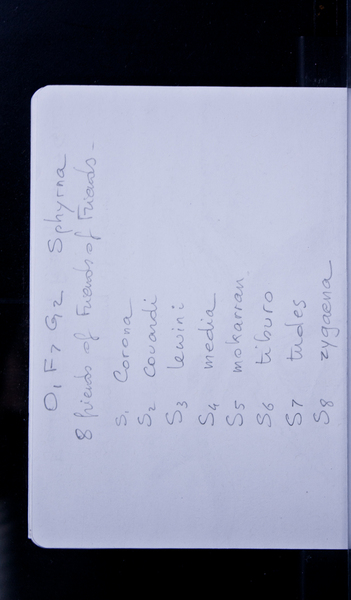 O1 F7 G2 Sphyrna
8 friends of Friends of Friends -
S1 Corona
S2 couardi
S3 lewini
S4 media
S5 mokarran
S6 tiburo
S7 tudes
S8 zygaena